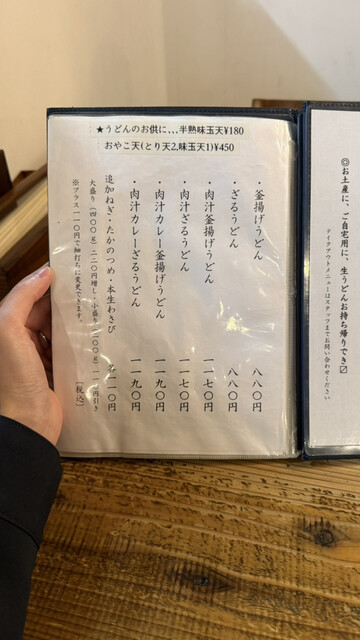 ★うどんのお供に、、、半熟味玉天¥180
おやこ天(とり天2,味玉天1)¥450
・釜揚げうどん 八八〇円
・ざるうどん 八八〇円
・肉汁釜揚げうどん 一一七〇円
・肉汁ざるうどん 一一七〇円
・肉汁カレー釜揚げうどん 一一九〇円
・肉汁カレーざるうどん 一一九〇円
追加ねぎ・たかのつめ・本生わさび 各一一〇円
大盛り(四〇〇g)二二〇円増し・小盛り(二〇〇g)一一〇円引き
※プラス一一〇円で細打ちに変更できます。
[税込]
◎お土産に、ご自宅用に、生うどんお持ち帰りでき〼
テイクアウトメニューはスタッフまでお問い合わせください